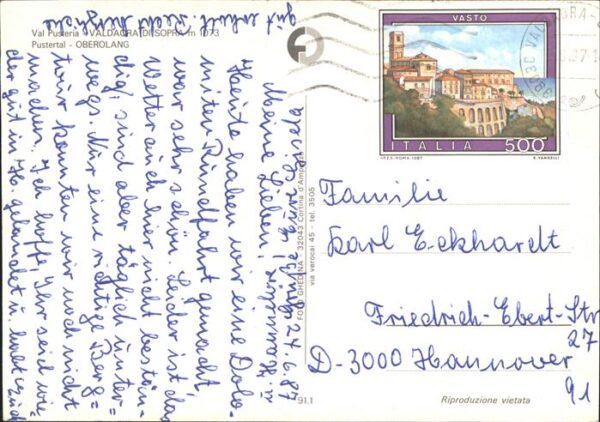 Val Pusteria - VALDAORA DI SOPRA m 1073
Pustertal - OBEROLANG
VASTO
ITALIA 500
I.P.Z.S.-ROMA-1987 E. VANGELLI
FOTO GHEDINA - 32043 Cortina d'Ampezzo
via verocai 45 - tel. 3505
91.1
Riproduzione vietata
Familie
Karl Eckhardt
Friedrich-Ebert-Str
27
D-3000 Hannover
91
24.6.87
Meine Lieben!
Heute haben wir eine Dolo-
miten Rundfahrt gemacht
war sehr schön. Leider ist das
Wetter auch hier nicht bestän-
dig, sind aber täglich unter=
wegs. Nur eine richtige Berg=
tour konnten wir noch nicht
machen. Ich hoffe, Ihr seid wie
der gut in H. gelandet u. habt Euch
gut erholt.